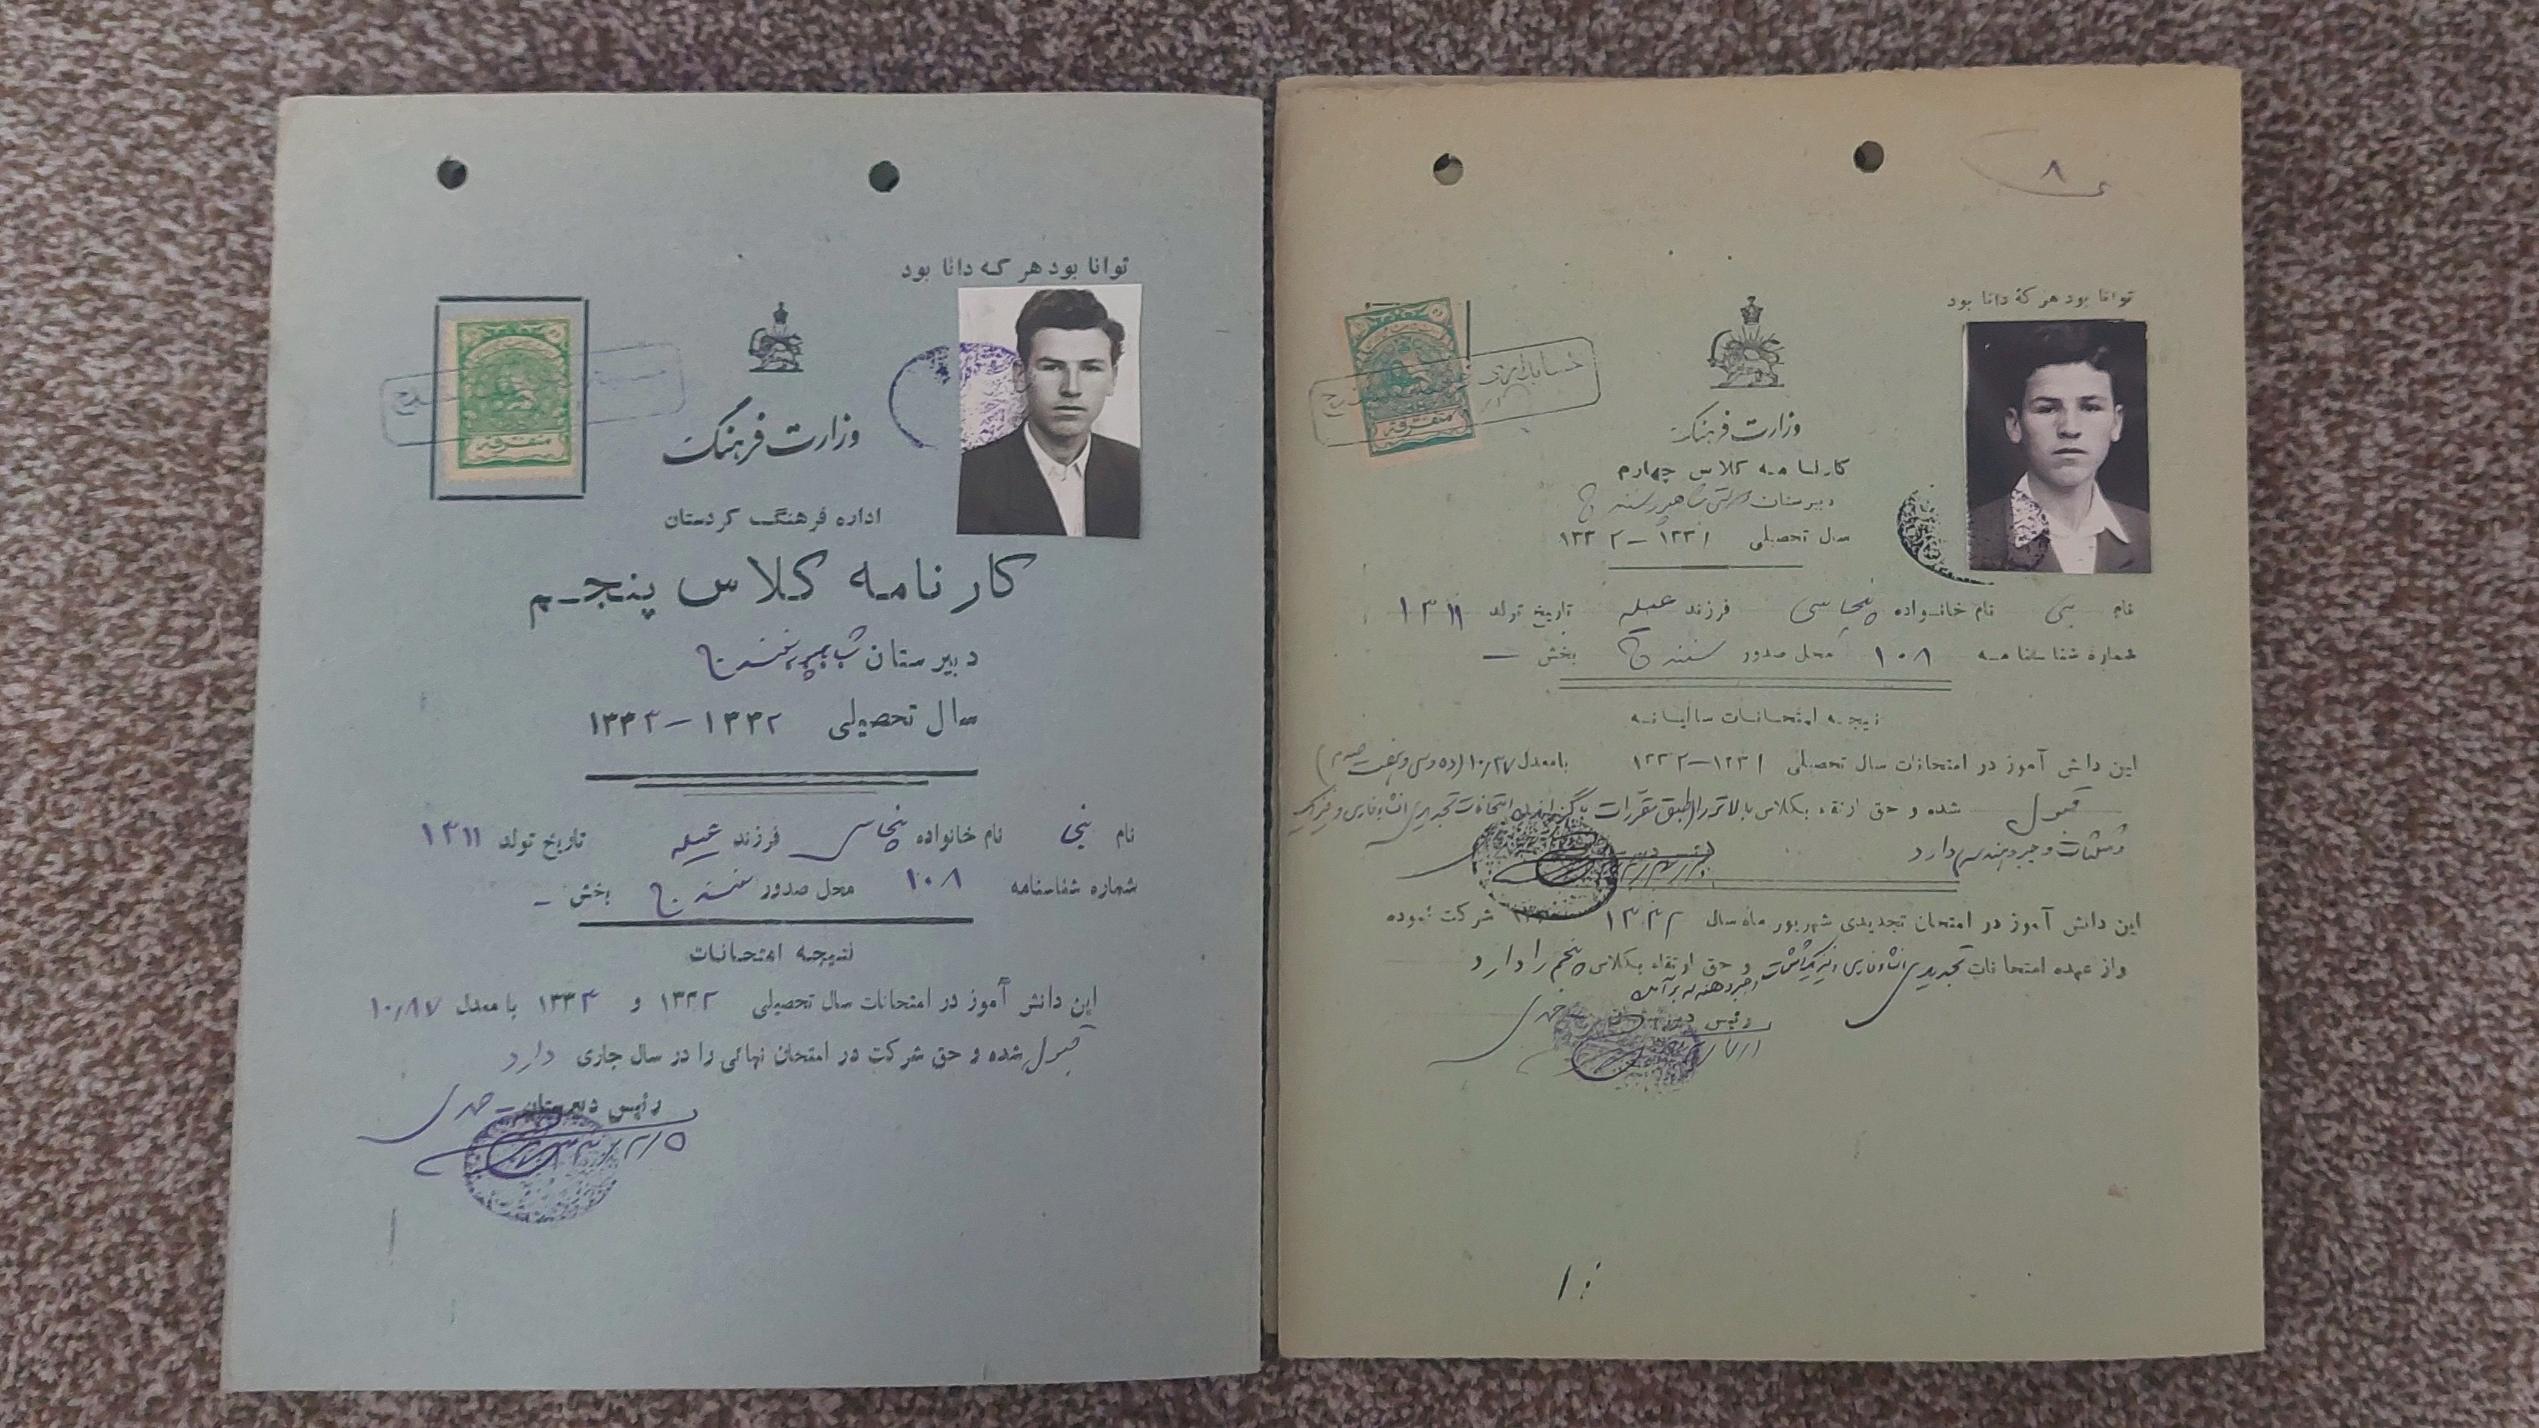 توانا بود هر که دانا بود
متفرقه
وزارت فرهنگ
اداره فرهنگ کردستان
کارنامه کلاس پنجم
دبیرستان شاهپور سنندج
سال تحصیلی ۱۳۳۲-۱۳۳۳
نام نبی نام خانواده فرزند تاریخ تولد ۱۳۱۱
شماره شناسنامه ۱۰۸ محل صدور سنندج بخش -
نتیجه امتحانات
این دانش آموز در امتحانات سال تحصیلی ۱۳۳۲ و ۱۳۳۳ با معدل ۱۰/۸۷
قبول شده و حق شرکت در امتحان نهائی را در سال جاری دارد
رئیس دبیرستان
۸
توانا بود هر که دانا بود
متفرقه
وزارت فرهنگ
کارنامه کلاس چهارم
دبیرستان شاهپور سنندج
سال تحصیلی ۱۳۳۱-۱۳۳۲
نام نبی نام خانواده فرزند تاریخ تولد ۱۳۱۱
شماره شناسنامه ۱۰۸ محل صدور سنندج بخش —
نتیجه امتحانات سالیانه
این دانش آموز در امتحانات سال تحصیلی ۱۳۳۱-۱۳۳۲ با معدل ۱۰/۳۷ (ده و سی و هفت صدم)
قبول شده و حق ارتقاء بکلاس بالاتر را طبق مقررات با گذراندن امتحانات تجدیدی انشاء فارسی و فیزیک
و مثلثات و جبر و هندسه دارد
این دانش آموز در امتحان تجدیدی شهریور ماه سال ۱۳۳۲ شرکت نموده
و از عهده امتحانات تجدیدی انشاء فارسی و فیزیک و مثلثات و حق ارتقاء بکلاس پنجم را دارد
و جبر و هندسه برآمده
رئیس دبیرستان